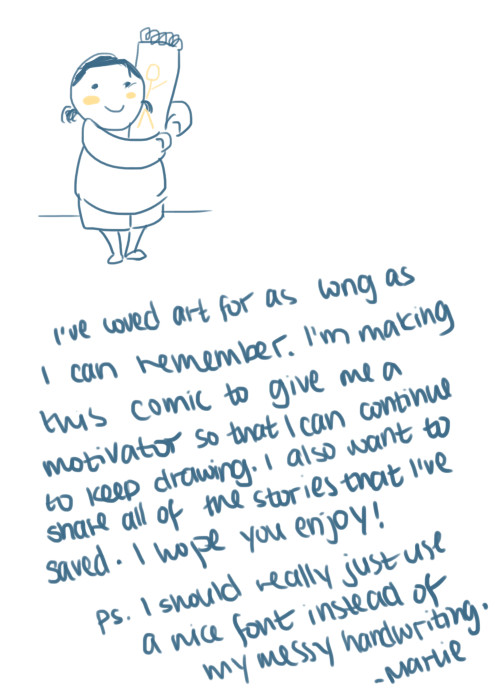 I've loved art for as long as
I can remember. I'm making
this comic to give me a
motivator so that I can continue
to keep drawing. I also want to
share all of the stories that I've
saved. I hope you enjoy!
ps. I should really just use
a nice font instead of
my messy handwriting.
-Marlie